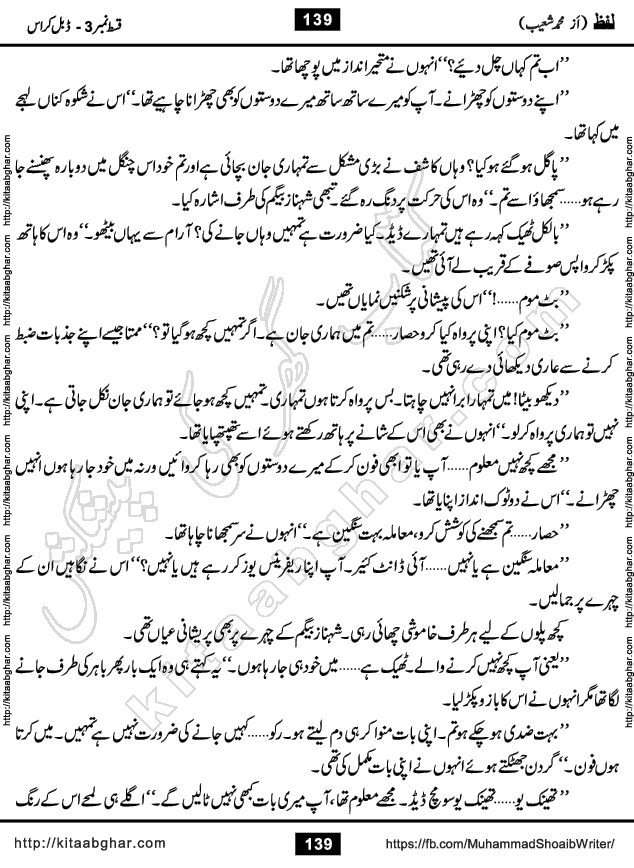 لفظ (از محمد شعیب) 139 قسط نمبر 3 - ڈبل کراس
’’اب تم کہاں چل دیئے؟‘‘انہوں نے متحیر انداز میں پوچھا تھا۔
’’اپنے دوستوں کو چھڑانے۔ آپ کو میرے ساتھ ساتھ میرے دوستوں کو بھی چھڑانا چاہیے تھا۔‘‘اس نے شکوہ کناں لہجے
میں کہا تھا۔
’’پاگل ہو گئے ہو کیا؟ وہاں کاشف نے بڑی مشکل سے تمہاری جان بچائی ہے اور تم خود اس چنگل میں دوبارہ پھنسنے جا
رہے ہو......سمجھاؤ اسے تم۔‘‘وہ اس کی حرکت پر ونگ رہ گئے۔ تبھی شہناز بیگم کی طرف اشارہ کیا۔
’’بالکل ٹھیک کہہ رہے ہیں تمہارے ڈیڈ۔ کیا ضرورت ہے تمہیں وہاں جانے کی؟ آرام سے یہاں بیٹھو۔‘‘وہ اس کا ہاتھ
پکڑ کر واپس صوفے کے قریب لے آئی تھیں۔
’’بٹ موم......!‘‘اس کی پیشانی پر شکنیں نمایاں تھیں۔
’’بٹ موم کیا؟ اپنی پرواہ کیا کرو حصار......تم میں ہماری جان ہے۔ اگر تمہیں کچھ ہو گیا تو؟‘‘ممتا جیسے اپنے جذبات ضبط
کرنے سے عاری دیکھائی دے رہی تھی۔
’’دیکھو بیٹا! میں تمہارا برا نہیں چاہتا۔ بس پرواہ کرتا ہوں تمہاری۔ تمہیں کچھ ہو جائے تو ہماری جان نکل جاتی ہے۔ اپنی
نہیں تو ہماری پرواہ کر لو۔‘‘انہوں نے بھی اس کے شانے پر ہاتھ رکھتے ہوئے اسے تھپتھپایا تھا۔
’’مجھے کچھ نہیں معلوم......آپ یا تو ابھی فون کر کے میرے دوستوں کو بھی رہا کروائیں ورنہ میں خود جا رہا ہوں انہیں
چھڑانے۔‘‘اس نے دوٹوک انداز اپنایا تھا۔
’’حصار......تم سمجھنے کی کوشش کرو، معاملہ بہت سنگین ہے۔‘‘انہوں نے سر سمجھانا چاہا تھا۔
’’معاملہ سنگین ہے یا نہیں......آئی ڈانٹ کئیر۔ آپ اپنا ریفرینس یوز کر رہے ہیں یا نہیں؟‘‘اس نے نگاہیں ان کے
چہرے پر جما لیں۔
کچھ پلوں کے لیے ہر طرف خاموشی چھائی رہی۔ شہناز بیگم کے چہرے پر بھی پریشانی عیاں تھی۔
’’یعنی آپ کچھ نہیں کرنے والے۔ ٹھیک ہے......میں خود ہی جا رہا ہوں۔‘‘یہ کہتے ہی وہ ایک بار پھر باہر کی طرف جانے
لگا تھا مگر انہوں نے اس کا بازو پکڑ لیا۔
’’بہت ضدی ہو چکے ہو تم۔ اپنی بات منوا کر ہی دم لیتے ہو۔ رکو......کہیں جانے کی ضرورت نہیں ہے تمہیں۔ میں کرتا
ہوں فون۔‘‘گردن جھٹکتے ہوئے انہوں نے اپنی بات مکمل کی تھی۔
’’تھینک یو......تھینک یو سو مچ ڈیڈ۔ مجھے معلوم تھا، آپ میری بات کبھی نہیں ٹالیں گے۔‘‘اگلے ہی لمحے اس کے رنگ
http://kitaabghar.com 139 https://fb.com/MuhammadShoaibWriter/
http://kitaabghar.com http://kitaabghar.com http://kitaabghar.com http://kitaabghar.com http://kitaabghar.com http://kitaabghar.com
http://kitaabghar.com http://kitaabghar.com http://kitaabghar.com http://kitaabghar.com http://kitaabghar.com http://kitaabghar.com
کتاب گھر کی پیشکش
kitaabghar.com